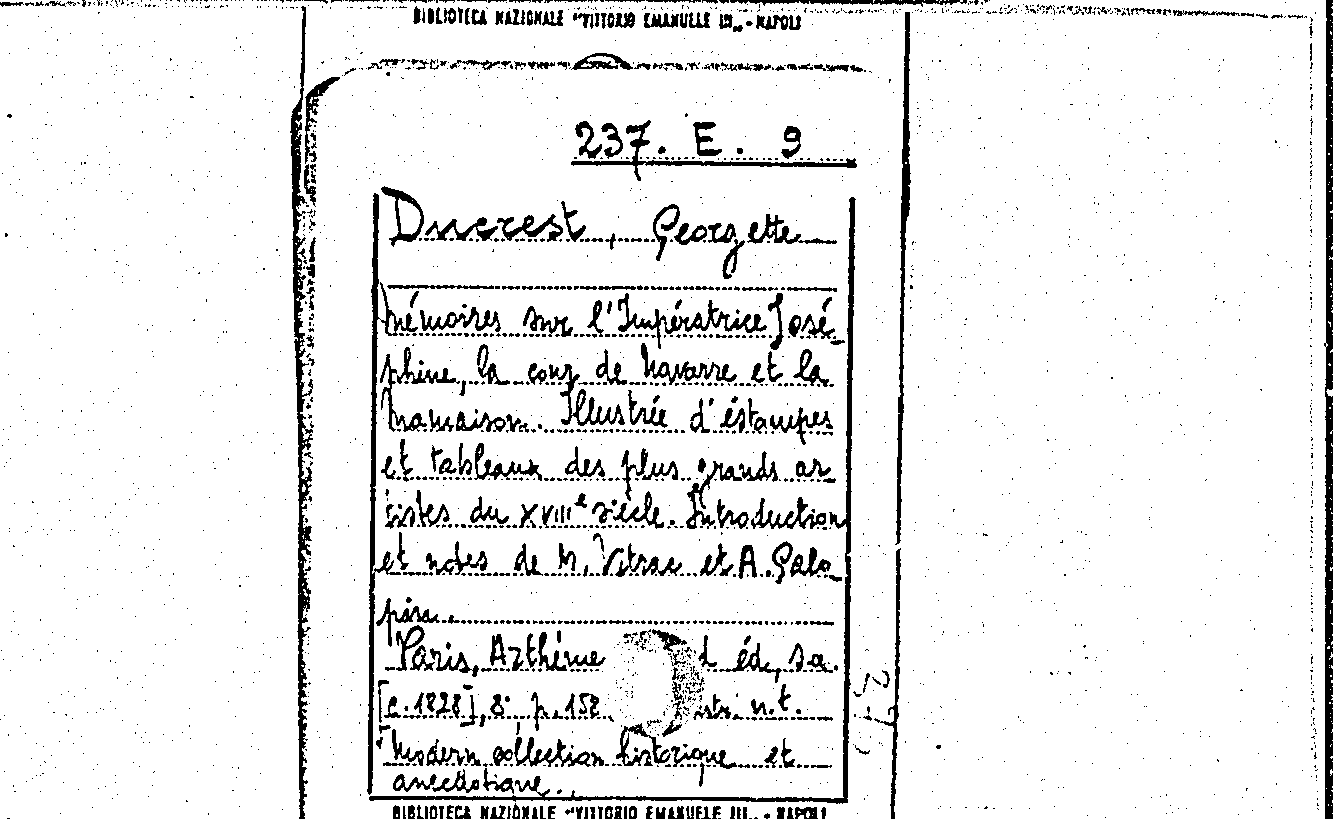 BIBLIOTECA NAZIONALE "VITTORIO EMANUELE III" - NAPOLI
237. E. 9
Ducrest, Georgette
Mémoires sur l'Impératrice José-
phine, la cour de Navarre et la
Mamaison. Illustrée d'éstampes
et tableaux des plus grands ar-
tistes du XVIIIe siècle. Introduction
et notes de M. Vitrac et A. Galo-
pin.
Paris, Arthème d éd, s.a.
[c. 1828], 8°, p. 158 n.t.
Modern collection historique et
anecdotique.
BIBLIOTECA NAZIONALE "VITTORIO EMANUELE III" - NAPOLI